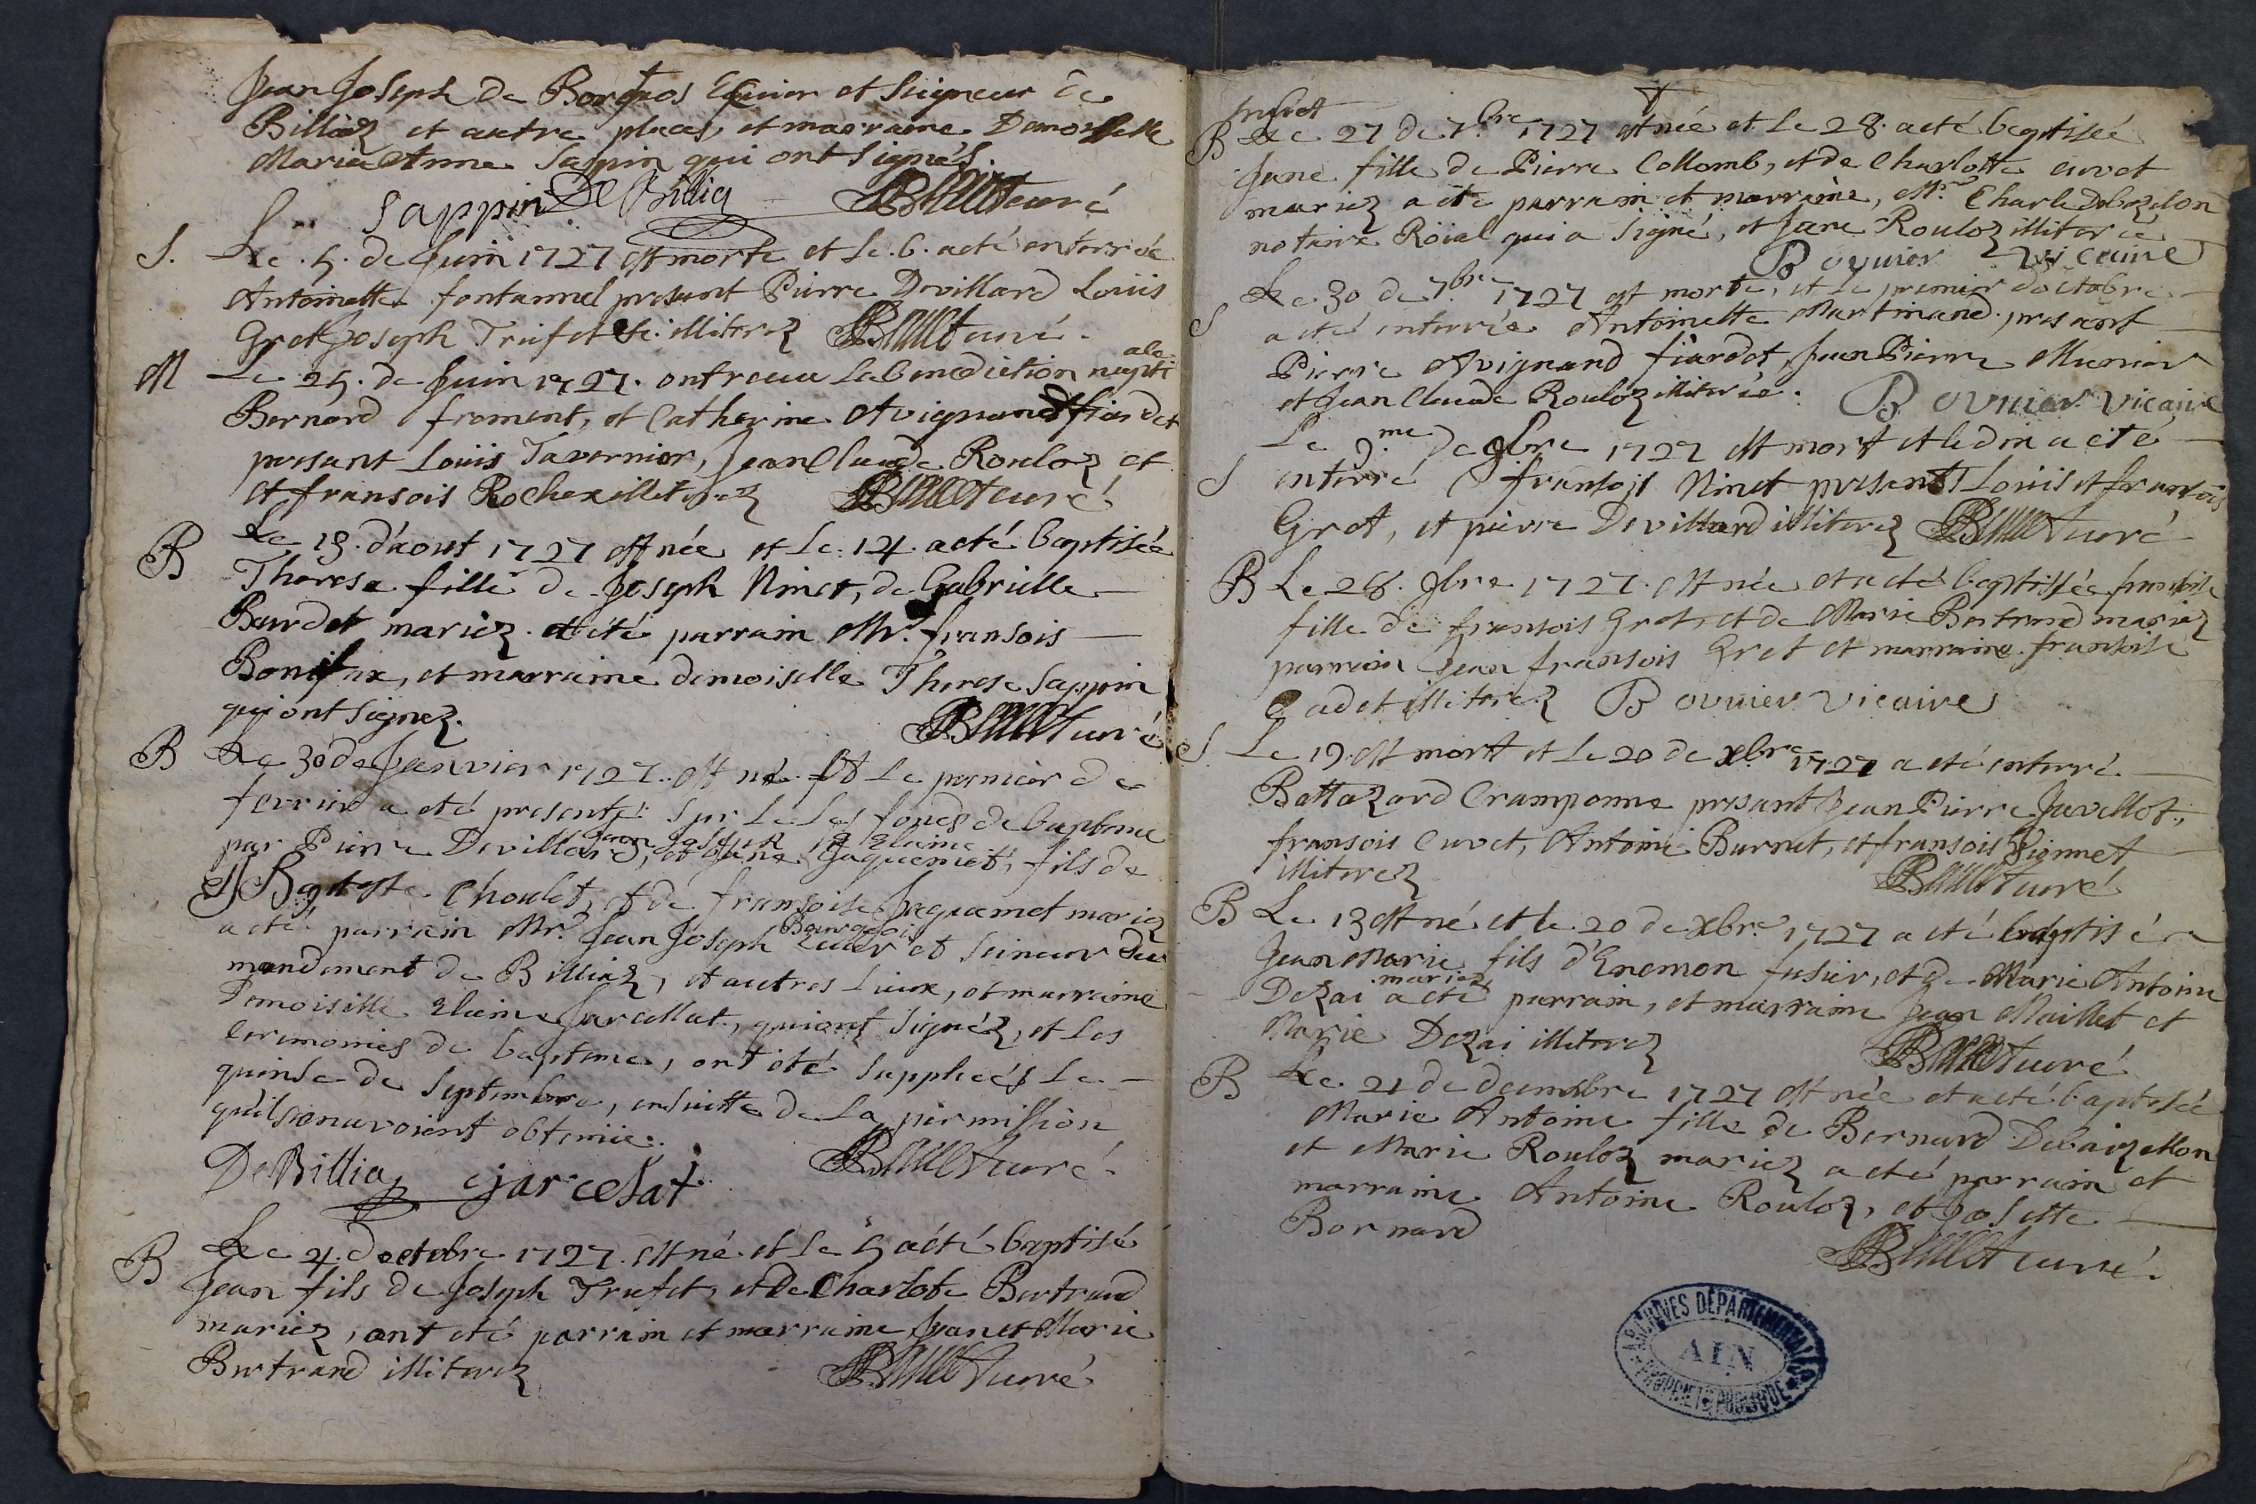 Jean Joseph de Borgeos Ecuier et Seigneur de
Billiaz et autre places, et marraine Demoiselle
Marie Anne Sappin qui ont signés.
Sappin De Billia Curé
S. Le . 5 . de Juin 1727 est morte et le . 6 . a eté enterrée
Antoinette fontannel present Pierre Devillard Louis
Gret Joseph Trufet illiterez curé.
M Le 25 . de Juin 1727 . ont receu La benediction nuptiale
Bernard froment, et Catherine Avignand fiardet
present Louis Tavernier, Jean Claude Rouloz et
et fransois Roche illiterez curé
B Le 13 . d'aout 1727 est née et Le . 14 . a eté baptisée
Therese fille de Joseph Ninet, de Gabrielle
Burdet mariez . a eté parrain Mr. fransois
Bonifax, et marraine demoiselle Therese Sappin
qui ont signez. curé
B Le 30 de Janvier 1727 . est né . et Le premier de
fevrier a eté presenté sur Les fonds de baptême
par Pierre Devillard, et Jane Jaquemet, fils de
Jean Joseph
J Baptiste Choulet, et de fransoise Jaquemet mariez
a eté parrain Mr. Jean Joseph Bourgeois Ecuier et Seineur du
mandement de Billiaz, et autres Lieux, et marraine
Demoiselle Jarcellat, qui ont Signéz, et Les
ceremonies de baptême, ont eté Suppleés Le
quinse de Septembre, ensuitte de La permission
qu'ils en avoient obtenüe. curé.
De Billiaz Cjarcelat
B Le 4 . d'octobre 1727 . est né . et Le 5 a eté baptisé
Jean fils de Joseph Trufet, et de Charlote Bertrand
mariez, ont eté parrain et marraine Jean et Marie
Bertrand illiterez curé
B Le 27 de 7.bre 1727 est née et Le 28 . a eté baptisée
Jane fille de Pierre Collomb, et de Charlotte Cuvet
mariez a eté parrain et marraine, Mr. Charle Debezelon
notaire Roïal qui a signé, et Jane Rouloz illiterée
Bouvier vicaire
S Le 30 de 7bre 1727 est morte, et Le premier d'octobre
a eté enterrée Antoinette Martinand . present
Pierre Avignand fiardet, Jean Pierre Munier
et Jean Claude Rouloz illiterée . Bouvier vicaire
S Le 9.me de 9bre 1727 est mort et le dix a eté
enterré fransois Ninet present Louis et fransois
Gret, et pierre Devillard illiterez curé
B Le 26 . 9bre 1727 . est née et a eté baptissée fransoise
fille de fransois Gret, et de Marie Bertrand mariez
parrain Jean fransois Gret et marraine . fransoise
Cadet illiterez Bouvier vicaire
S. Le 19 . est mort et Le 20 de xbre 1727 a eté enterré
Battazard Cramponne present Jean Pierre Juvellet,
fransois Cuvet, Antoine Burnet, et fransois Pionnet
illiterez curé
B Le 13 est né et le 20 de xbre 1727 a eté baptisé
Jean Marie fils d'Enemon fusier, et de Marie Antoine
Dezai mariez a eté parrain, et marraine Jean Maillet et
Marie Dezai illiterez curé
B Le . 21 de decembre 1727 est née et a eté baptisée
Marie Antoine fille de Bernard Debaizellon
et Marie Rouloz mariez a eté parrain et
marraine Antoine Rouloz, et Josette
Bernard curé.
ARCHIVES DÉPARTEMENTALES
AIN
PROPRIÉTÉ PUBLIQUE